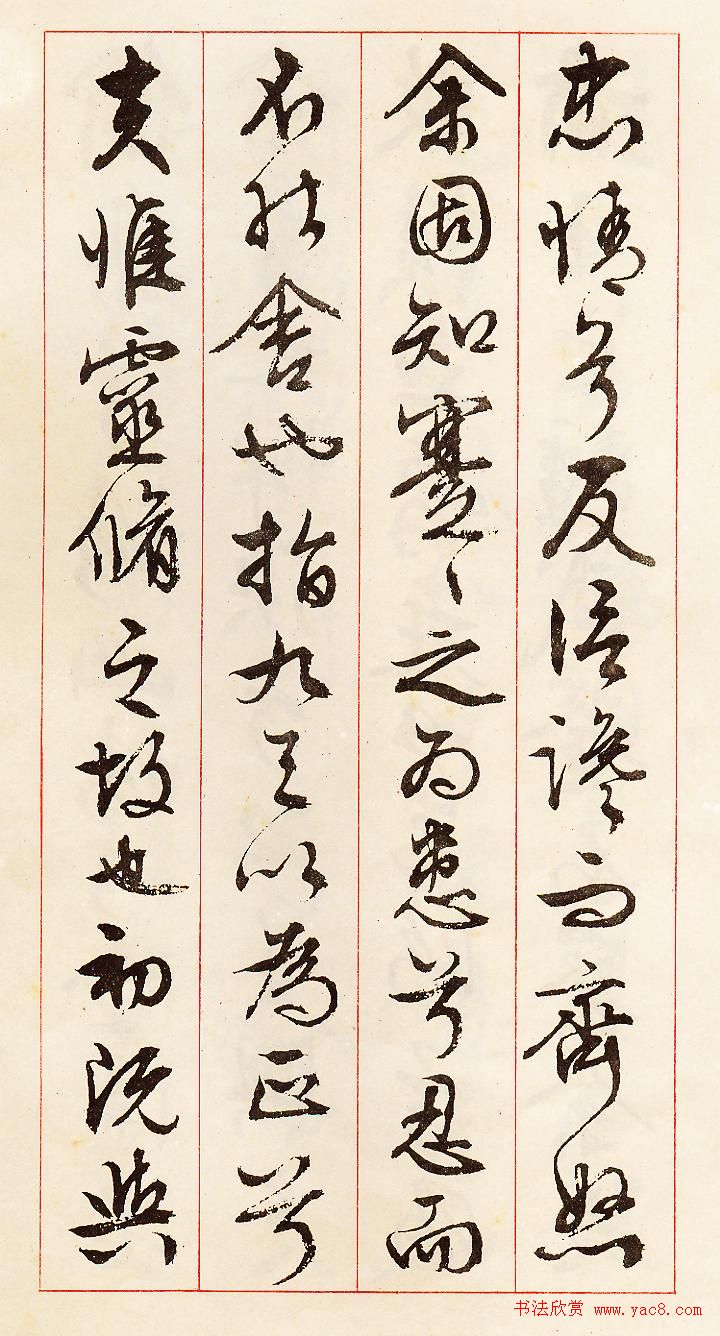 忠情兮反信讒而齊怒
余固知謇〻之为患兮忍而
不能舍也指九天以為正兮
夫惟靈脩之故也初既與
书法欣赏 www.yac8.com